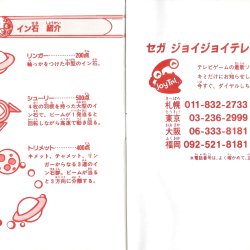 イン石 紹介
リンガー……200点
輪っかをつけた中型のイン石。
シューリー……500点
4枚の羽根を持った大型のイ
ン石で、ビームが1発当ると
回転しながら高速で動き回る。
トリメット……400点
キメット、チャメット、リン
ガーからなる3連のイ
ン石群。ビームが当る
と3方向に分離する。
セガ ジョイジョイテレ
テレビゲームの最新ソ
キミだけにお知らせし
今すぐ、ダイヤルしち
JoyToy!
札幌 011-832-2733
東京 03-236-2999
大阪 06-333-8181
福岡 092-521-8181
●電話番号は、よく確かめて、正